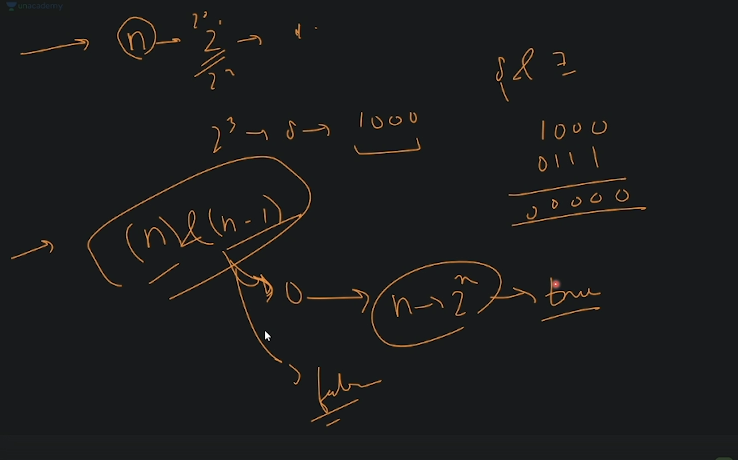 unacademy
n → 2 →
2ⁿ
8 & 7
2³ → 8 → 1000
1000
0111
00000
(n) & (n-1)
0 → n → 2ⁿ → true
false